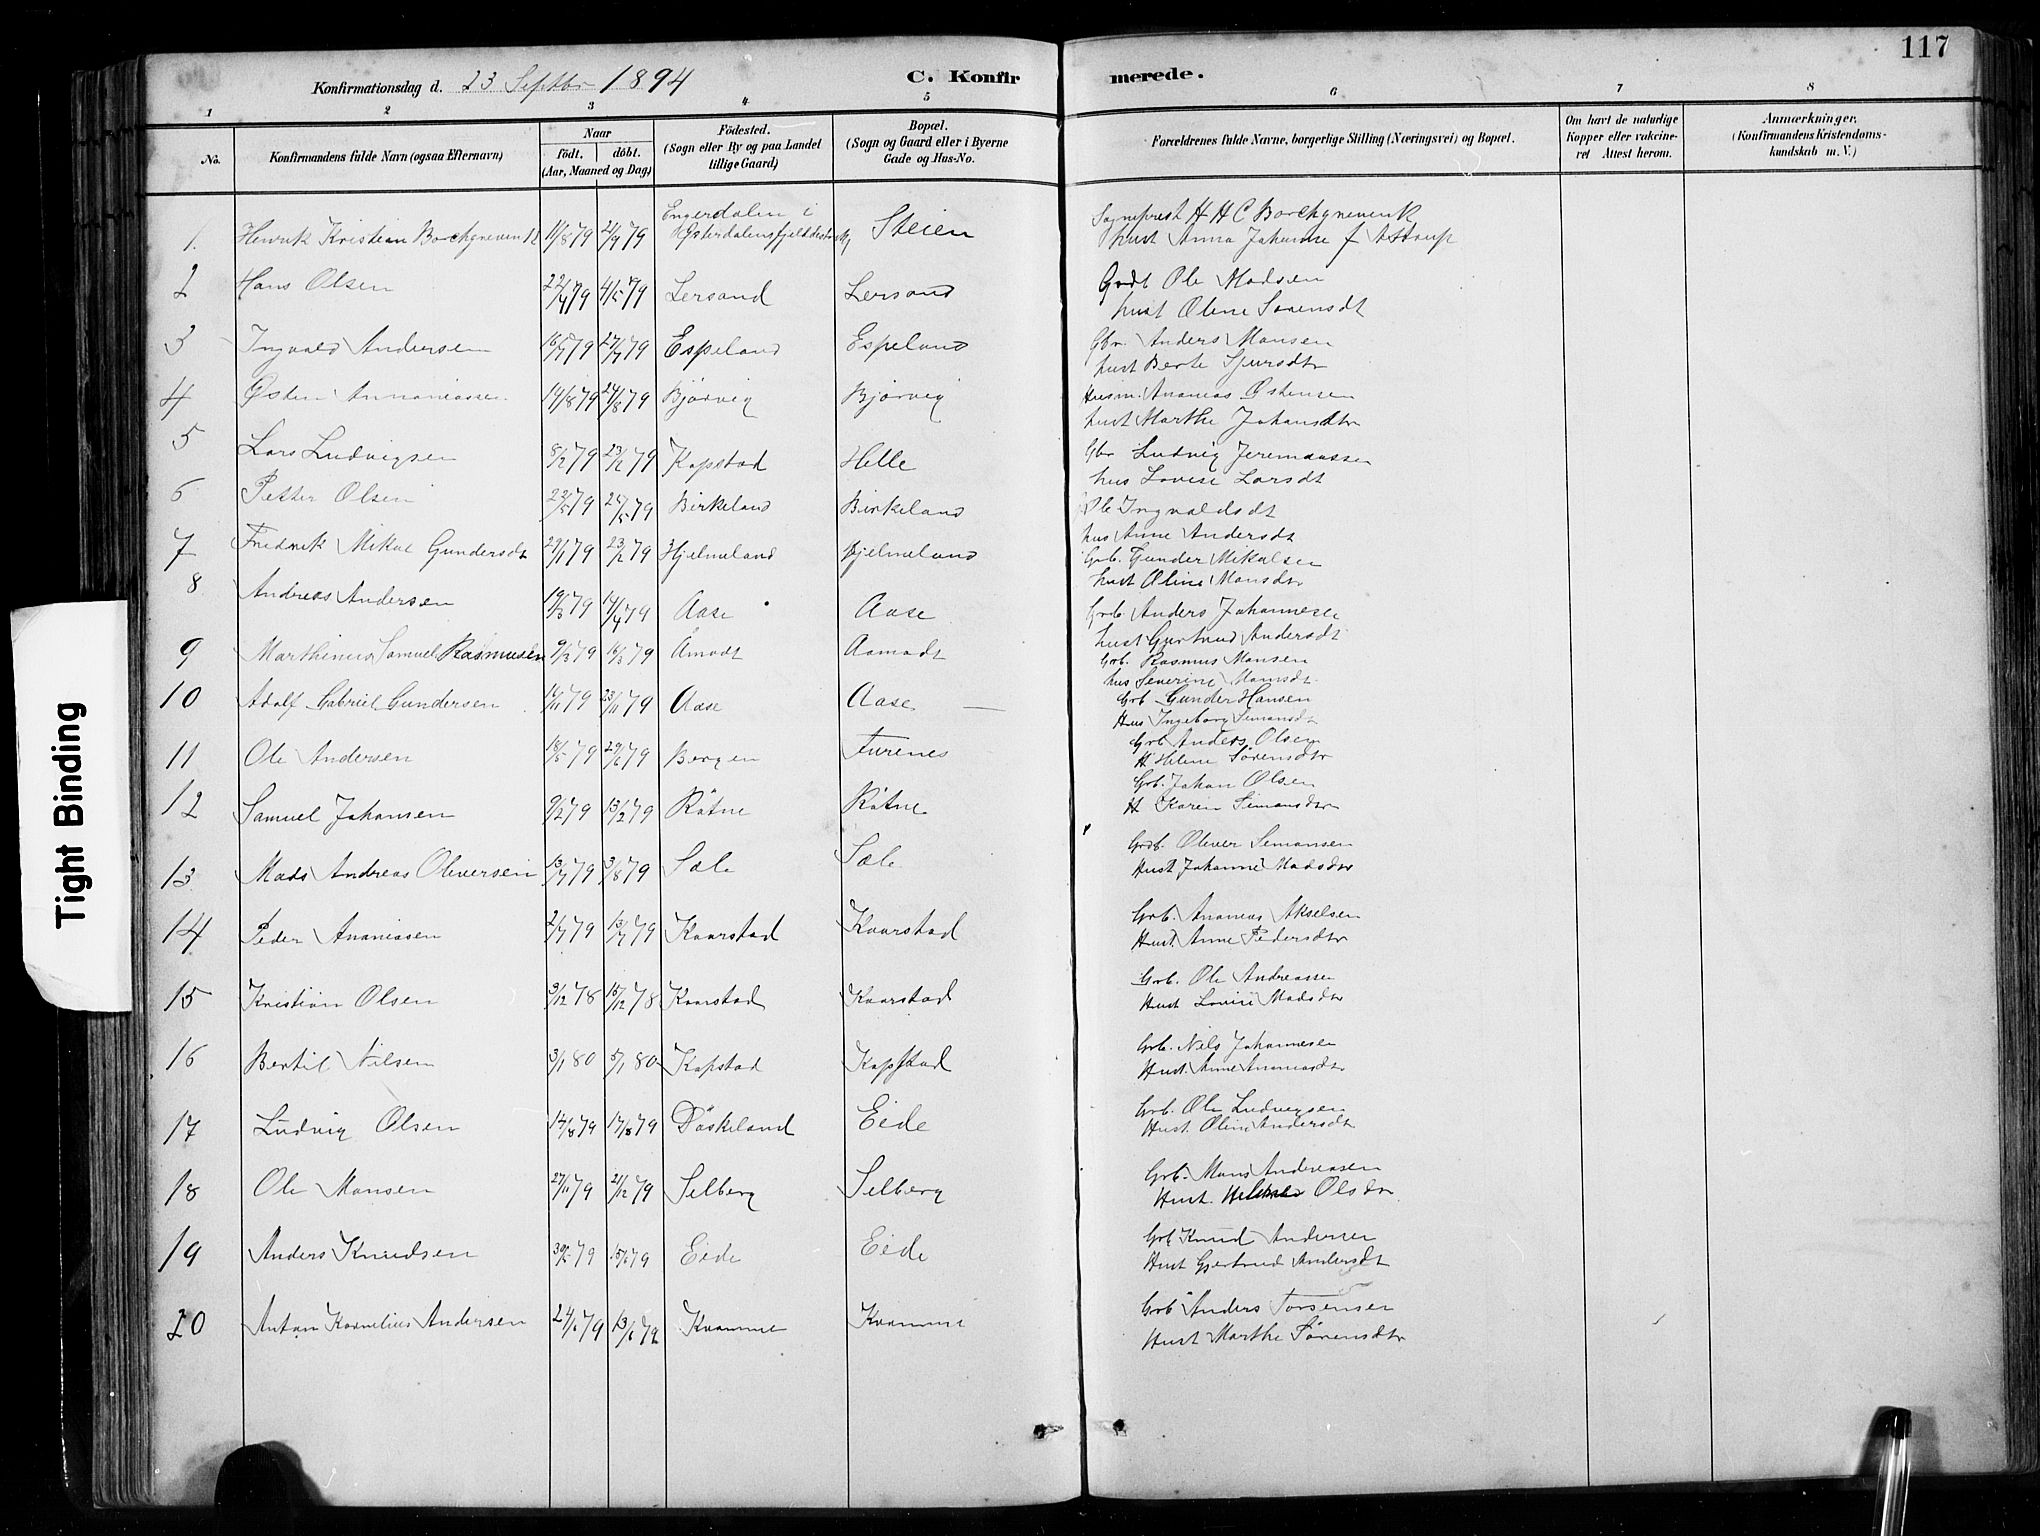 117
Konfirmationsdag d. 23 Septbr 1894
C. Konfirmerede.
1 2 3 4 5 6 7 8
No.
Konfirmandens fulde Navn (ogsaa Efternavn)
Naar
födt. döbt.
(Aar, Maaned og Dag)
Födested.
(Sogn eller By og paa Landet
tillige Gaard)
Bopæl.
(Sogn og Gaard eller i Byerne
Gade og Hus-No.
Forældrenes fulde Navne, borgerlige Stilling (Næringsvei) og Bopæl.
Om havt de naturlige
Kopper eller vakcine-
ret Attest herom.
Anmærkninger,
(Konfirmandens Kristendoms-
kundskab m. V.)
1. Henrik Kristian Borchgrevink 11/8 79 21/9 79 Engerdalen i Østerdalens Steien Sogneprest H H C Borchgrevenk
hust Anna Johanne f Astrup
2 Hans Olsen 22/4 79 4/5 79 Lersand Lersand Grdt Ole Madsen
hust Oline Sørensdt
3 Ingvald Andersen 16/7 79 27/7 79 Espeland Espeland Gbr. Anders Monsen
hust Berte Sjursdtr
4 Østen Annaniassen 14/8 79 24/8 79 Bjørvig Bjørvig Husm. Ananias Østensen
hust Marthe Johansdtr
5 Lars Ludvigsen 8/2 79 23/2 79 Kopstad Helle Gbr Ludvig Jeremiassen
hus Lovise Larsdt
6 Petter Olsen 22/5 79 Birkeland Birkeland Ole Ingvaldsdt
hus Anne Andersdt
7 Fredrik Mikal Gundersdt 29/1 79 23/2 79 Hjelmeland Hjelmeland Grb. Gunder Mikalsen
hust Oline Monsdtr
8 Andreas Andersen 19/3 79 14/4 79 Aase Aase Grb Anders Johannesen
hust Gjertrud Andersdt
9 Marthinus Samuel Rasmusen 9/3 79 16/3 79 Åmodt Aamodt Grb. Rasmus Monsen
hus Severine Monsdt.
10 Adolf Gabriel Gundersen 16/11 79 23/11 79 Aase Aase Grb Gunder Hansen
Hus Ingeborg Simonsdt
11 Ole Andersen 18/5 79 29/6 79 Bergen Furenes Grb Anders Olsen
H Helene Sørensdtr
12 Samuel Johansen 9/2 79 13/2 79 Råtne Råtne Grb. Johan Olsen
H Karen Simonsdtr
13 Mads Andreas Oliversen 13/7 79 3/8 79 Sæle Sæle Grdb. Oliver Simonsen
Hust Johanne Madsdtr
14 Peder Ananiasen 2/7 79 13/7 79 Kvarstad Kvarstad Grb. Ananias Akselsen
Hust Anne Pedersdtr
15 Kristian Olsen 3/12 78 15/12 78 Kvarstad Kvarstad Grb. Ole Andreassen
Hust Lovise Madsdtr
16 Bertil Nilsen 3/1 80 5/1 80 Kopstad Kopstad Grb. Nils Johannesen
Hust. Anne Ananiasdtr
17 Ludvig Olsen 14/8 79 17/8 79 Døskeland Eide Grb. Ole Ludvigsen
Hust. Oline Andersdtr
18 Ole Monsen 27/11 79 21/12 79 Selberg Selberg Grb. Mons Andreassen
Hust. Olsdtr
19 Anders Knudsen 79 15/6 79 Eide Eide Grb Knud Andersen
Hust Gjertrud Andersdt
20 Anton Kornelius Andersen 24/6 79 13/6 79 Kvamme Kvamme Grb Anders Torsensen
Hust Marthe Sørensdtr
Tight Binding